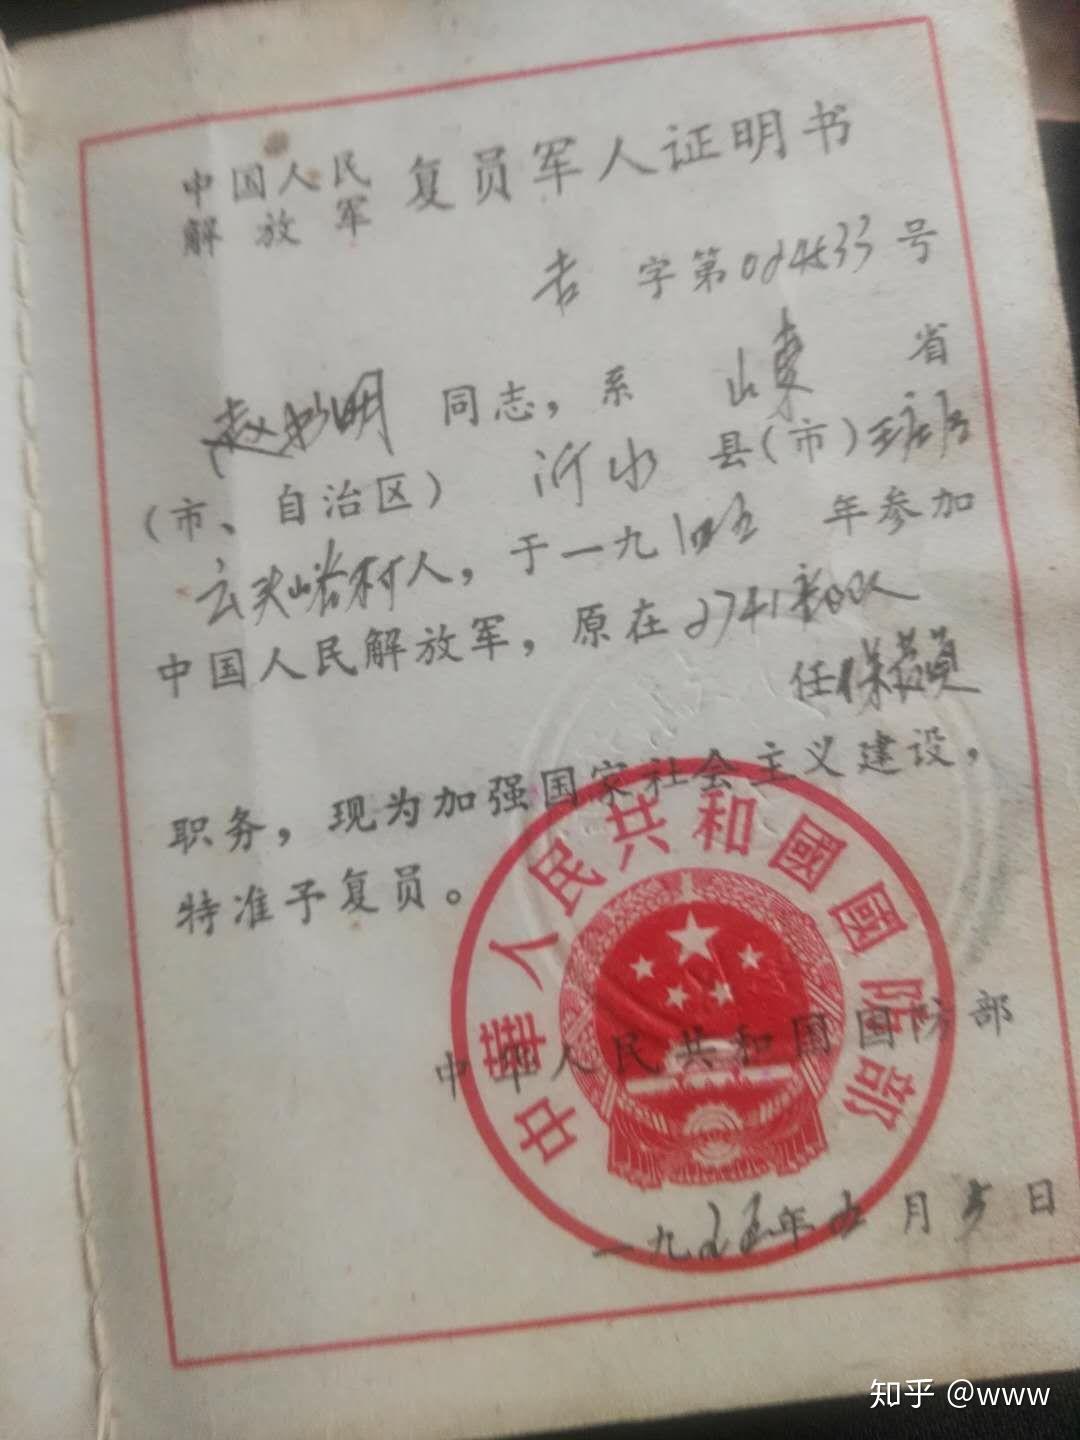 中国人民
解放军 复员军人证明书
吉 字第024533号
赵 明 同志，系 山東 省
（市、自治区） 沂水 县（市）
云头峪村人，于一九四五 年参加
中国人民解放军，原在2741部队
任保管員
职务，现为加强国家社会主义建设，
特准予复员。
中华人民共和国国防部
中華人民共和國國防部
一九五五年 月 日
知乎 @www